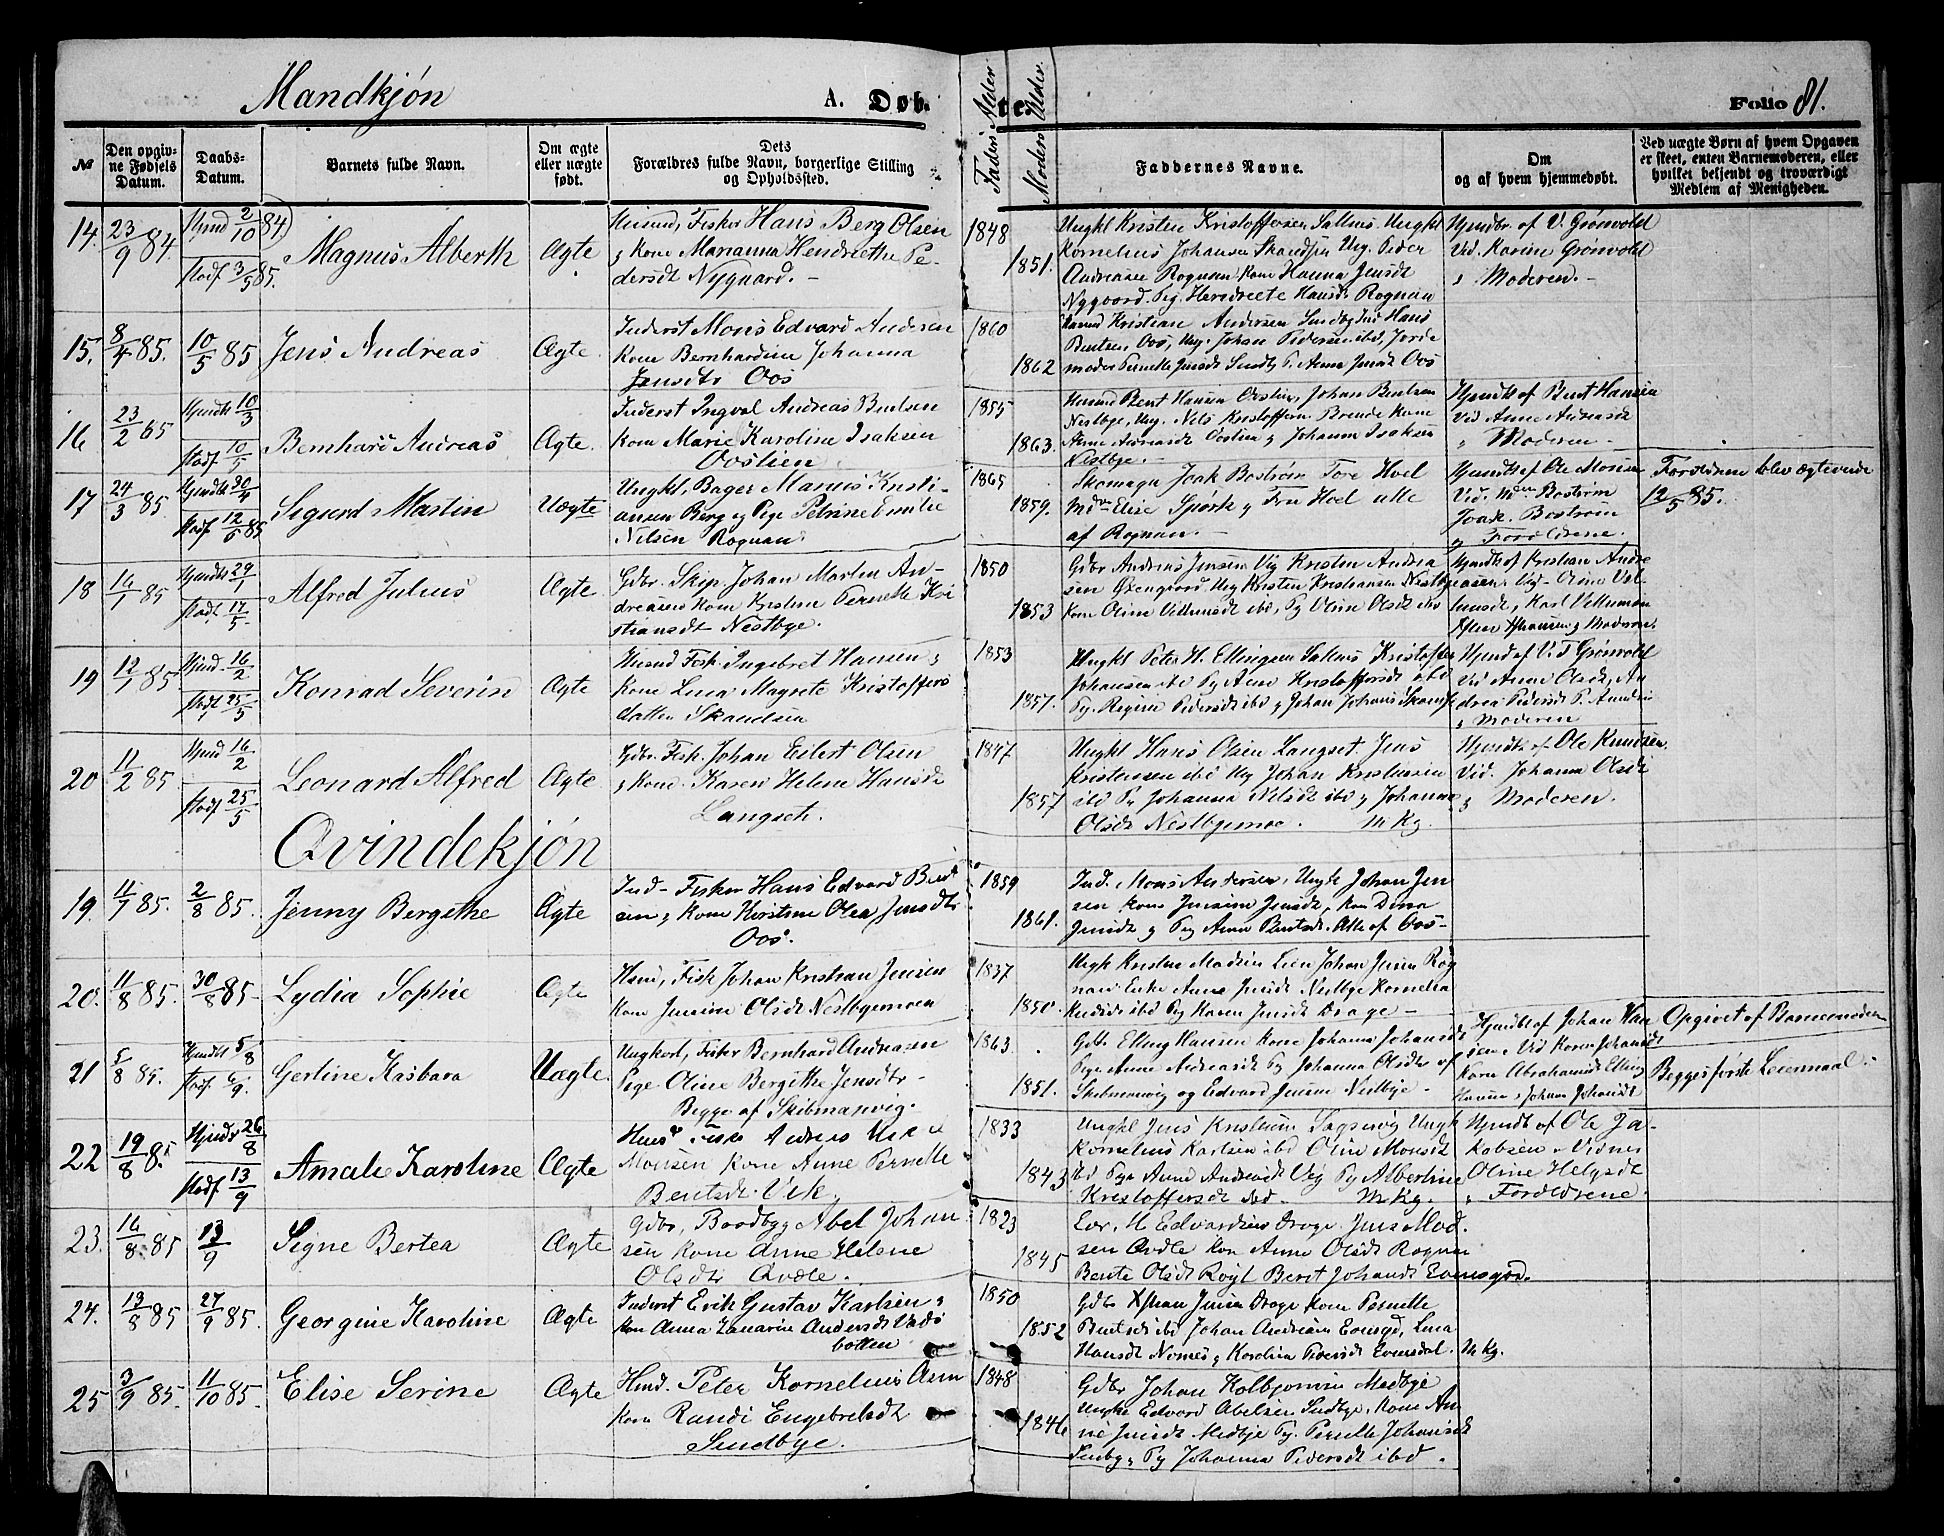 Mandkjøn A. Døbte. Folio 81.
№
Den opgivne Fødsels Datum.
Daabs-Datum.
Barnets fulde Navn.
Om ægte eller uægte født.
Dets Forældres fulde Navn, borgerlige Stilling og Opholdssted.
Faders Alder
Moders Alder.
Faddernes Navne.
Om og af hvem hjemmedøbt.
Ved uægte Børn af hvem Opgaven er skeet, enten Barnemoderen, eller hvilket bekjendt og troværdigt Medlem af Menigheden.
14. 23/9 84. Hjmd 2/10 84 Stadf 3/5 85. Magnus Alberth Ægte
Husmd, Fisker Hans Berg Olsen
g Kone Marianna Hendriethe Pe-
dersdt Nygaard. -
1848
1851.
Ungkl Kristen Kristoffersen Saltnes Ungkl
Kornelius Johansen Skandsen Ung. Peder
Andreasen Rognan Kone Hanna Jensdt
Nygaard. Pig. Hendreete Hansdt Rognan
Hjmdbr. af V. Grønvold
Vid. Karine Grønvold
g Moderen. -
15. 8/4 85. 10/5 85 Jens Andreas Ægte.
Inderst Mons Edvard Andersen
Kone Bernhardine Johanna
Jensdtr Oos
1860
1862
Kristian Andersen Sundby Ind Hans
Bentsen, Oos, Ung. Johan Pedersen ibd, Jorde
moder Pernelle Jensdt Sundby P. Anne Jensdt Oos
16 23/2 85 Hjmdt 10/3 Stadf 10/5 Bernhard Andreas Ægte.
Inderst Ingval Andreas Bentsen
Kone Marie Karoline Isaksen
Oostien
1855
1863.
Husmd Bent Hansen Oostien, Johan Bentsen
Nestbye, Ung. Nils Kristoffersen Brende Kone
Anne Andreasdt Oostien g Johanna Isaksen
Nestbye. -
Hjmdt af Bent Hansen
Vid Anne Andreasdt
g Moderen -
17 24/3 85. Hjmdt 30/4 Stadf 12/5 85 Sigurd Martin Uægte
Ungkl, Bager Marius Kristi-
ansen Berg og Pige Petrine Emilie
Nilsen Rognan.
1865
1859.
Skomager Joak Bostrøm Tore Hoel
Md Elise Spørk g Fru Hoel alle
af Rognan. -
Hjmdt af Ole Monsen
Vid. Bostrøm
Joak. Bostrøm
g Forældrene.
Forældrene blev ægteviede
12/5 85.
18 16/1 85 Hjmdt 29/1 Stadf 17/5. Alfred Julius Ægte.
Gdbr. Skip. Johan Martin An-
dreasen Kone Kristine Pernelle Kri
stiansdt Nestbye.
1850
1853
Gdbr Andreas Jensen Vig Kristen Andrea
sen Øxengaard Ung Kristen Kristiansen Nestby
Kone Oline Villumsdt ibd, Pg Oline Olsdt ibd
Hjmdt af Kristian Andre
asen. Vig - Oline Vil-
lumsdt, Karl Villumsen
g Moderen.
19 12/1 85 Hjmd. 16/2 Stadf 25/5 Konrad Severin Ægte
Husmd Fisk. Ingebret Hansen g
Kone Lina Magrete Kristoffers
datter Skandsen
1853
1857.
Ungkl Peter H. Ellingsen Saltnes Kristoffer
Johansen ibd Pg Anne Kristoffersdt ibd
Pg. Regine Pedersdt ibd g Johan Johansen Skandse
Hjmd af V. T Grønvold
Vid Anne Olsdt, An
drea Pedersdt
g Moderen
20 11/2 85. Hjmd 16/2 Stadf 25/5 Leonard Alfred Ægte
Gdbr. Fisk. Johan Eilert Olsen
g Kone. Karen Helene Hansdt
Langset.
1847
1857
Ungkl Hans Olsen Langset. Jens
Kristensen ibd Ung Johan Kristensen
ibd Pg Johanna Nelsdt ibd g Johanna
Olsdt Nestbymoe. M Kg.
Hjmdt af Ole Knudsen
Vid. Johanna Olsdt
g Moderen.
Qvindekjøn
19. 11/7 85. 2/8 85. Jenny Bergithe Ægte
Ind- Fisker Hans Edvard Bent
sen g Kone Kirstine Olea Jensdtr
Oos.
1859
1861.
Ind. Mons Andersen, Ungk Johan Jen
sen Kone Jensine Jensdt, Kon Dina
Jensdt g Pg Anne Bentsdt. Alle af Oos-
20. 11/8 85. 30/8 85- Lydia Sophie Ægte
Husmd, Fisk Johan Kristian Jensen
Kone Jensine Olsdt Nestbymoen
1837
1850.
Ungk Kristen Madsen Lien Johan Jensen Rog
nan Enke Anne Jensdt Nestbye Kornelia
ibd Pg Karen Jensdt Drage -
21 5/8 85. Hjmdt 5/8 Stadf 6/9. Gerline Kasbara Uægte.
Ungkarl, Fisker Bernhard Andreasen
Pige Oline Bergithe Jensdtr -
Begge af Skibmanvig.
1863
1851.
Gdbr Elling Hansen Kone Johanna Johansdt
Pige Anne Andreasdt Pg Johanna Olsdt af
Skibmanvig og Edvard Jensen Nestbye -
Hjmdt af Johan Han
sen. Vid Karen Johansdt
Karen Abrahamsdt Elling
Hansen g Johanna Johansdt
Opgivet af Barnemoderen
Begges første Leiermaal. -
22 19/8 85 Hjmdt 26/8 Stadf 13/9 Amalie Karoline Ægte
Husmd Fisk Andreas
Monsen Kone Anne Pernelle
Bentsdt Vik.
1833
1843
Ungkl Jens Kristensen Sagsvig Ungk
Kornelius Karlsen ibd Olin Monsdt
ibd Pige Anne Andreasdt Vig Pg Albertine
Kristoffersdt ibd. M Kg.
Hjmdt af Ole Ja-
kobsen. Vidner
Oline Helgsdt
g Forældrene
23. 16/8 85 13/9 Signe Bertea Ægte
Gdbr, Baadbyg Abel Johan
sen Kone Anne Helene
Olsdtr Qvæle.
1823
1845
Edvardsen Drage. Jens Mad.
sen Qvæle Kon Anne Olsdt Rognan
Berete Olsdt Røyt Beret Johansdt Evensgrd.
24. 13/8 85 27/9 85. Georgine Karoline Ægte
Inderst Erik Gustav Karlsen g
Kon Anna Zanarine Andersdt Vads
botten
1850
1852
Gdbr Jensen Drage Kone Pernelle
Bentsdt ibd Johan Andreasen Evensgd, Lina
Hansdt Nomes g Karolina Pedersdt Evensdal.
M Kg.
25 3/9 85. 11/10 85. Elise Serine Ægte
Husmd. Peter Kornelius Arn
Kone Randi Engebretsdt
Sundbye.
1848
1846
Gdbr Johan Kolbjørnsen Medbye
Ungkl Edvard Abelsen Sundbye, Kone An
ne Jensdt. Medbye Pg. Pernelle Johansdt
Sundby, Pg Johanna Pedersdt ibd.